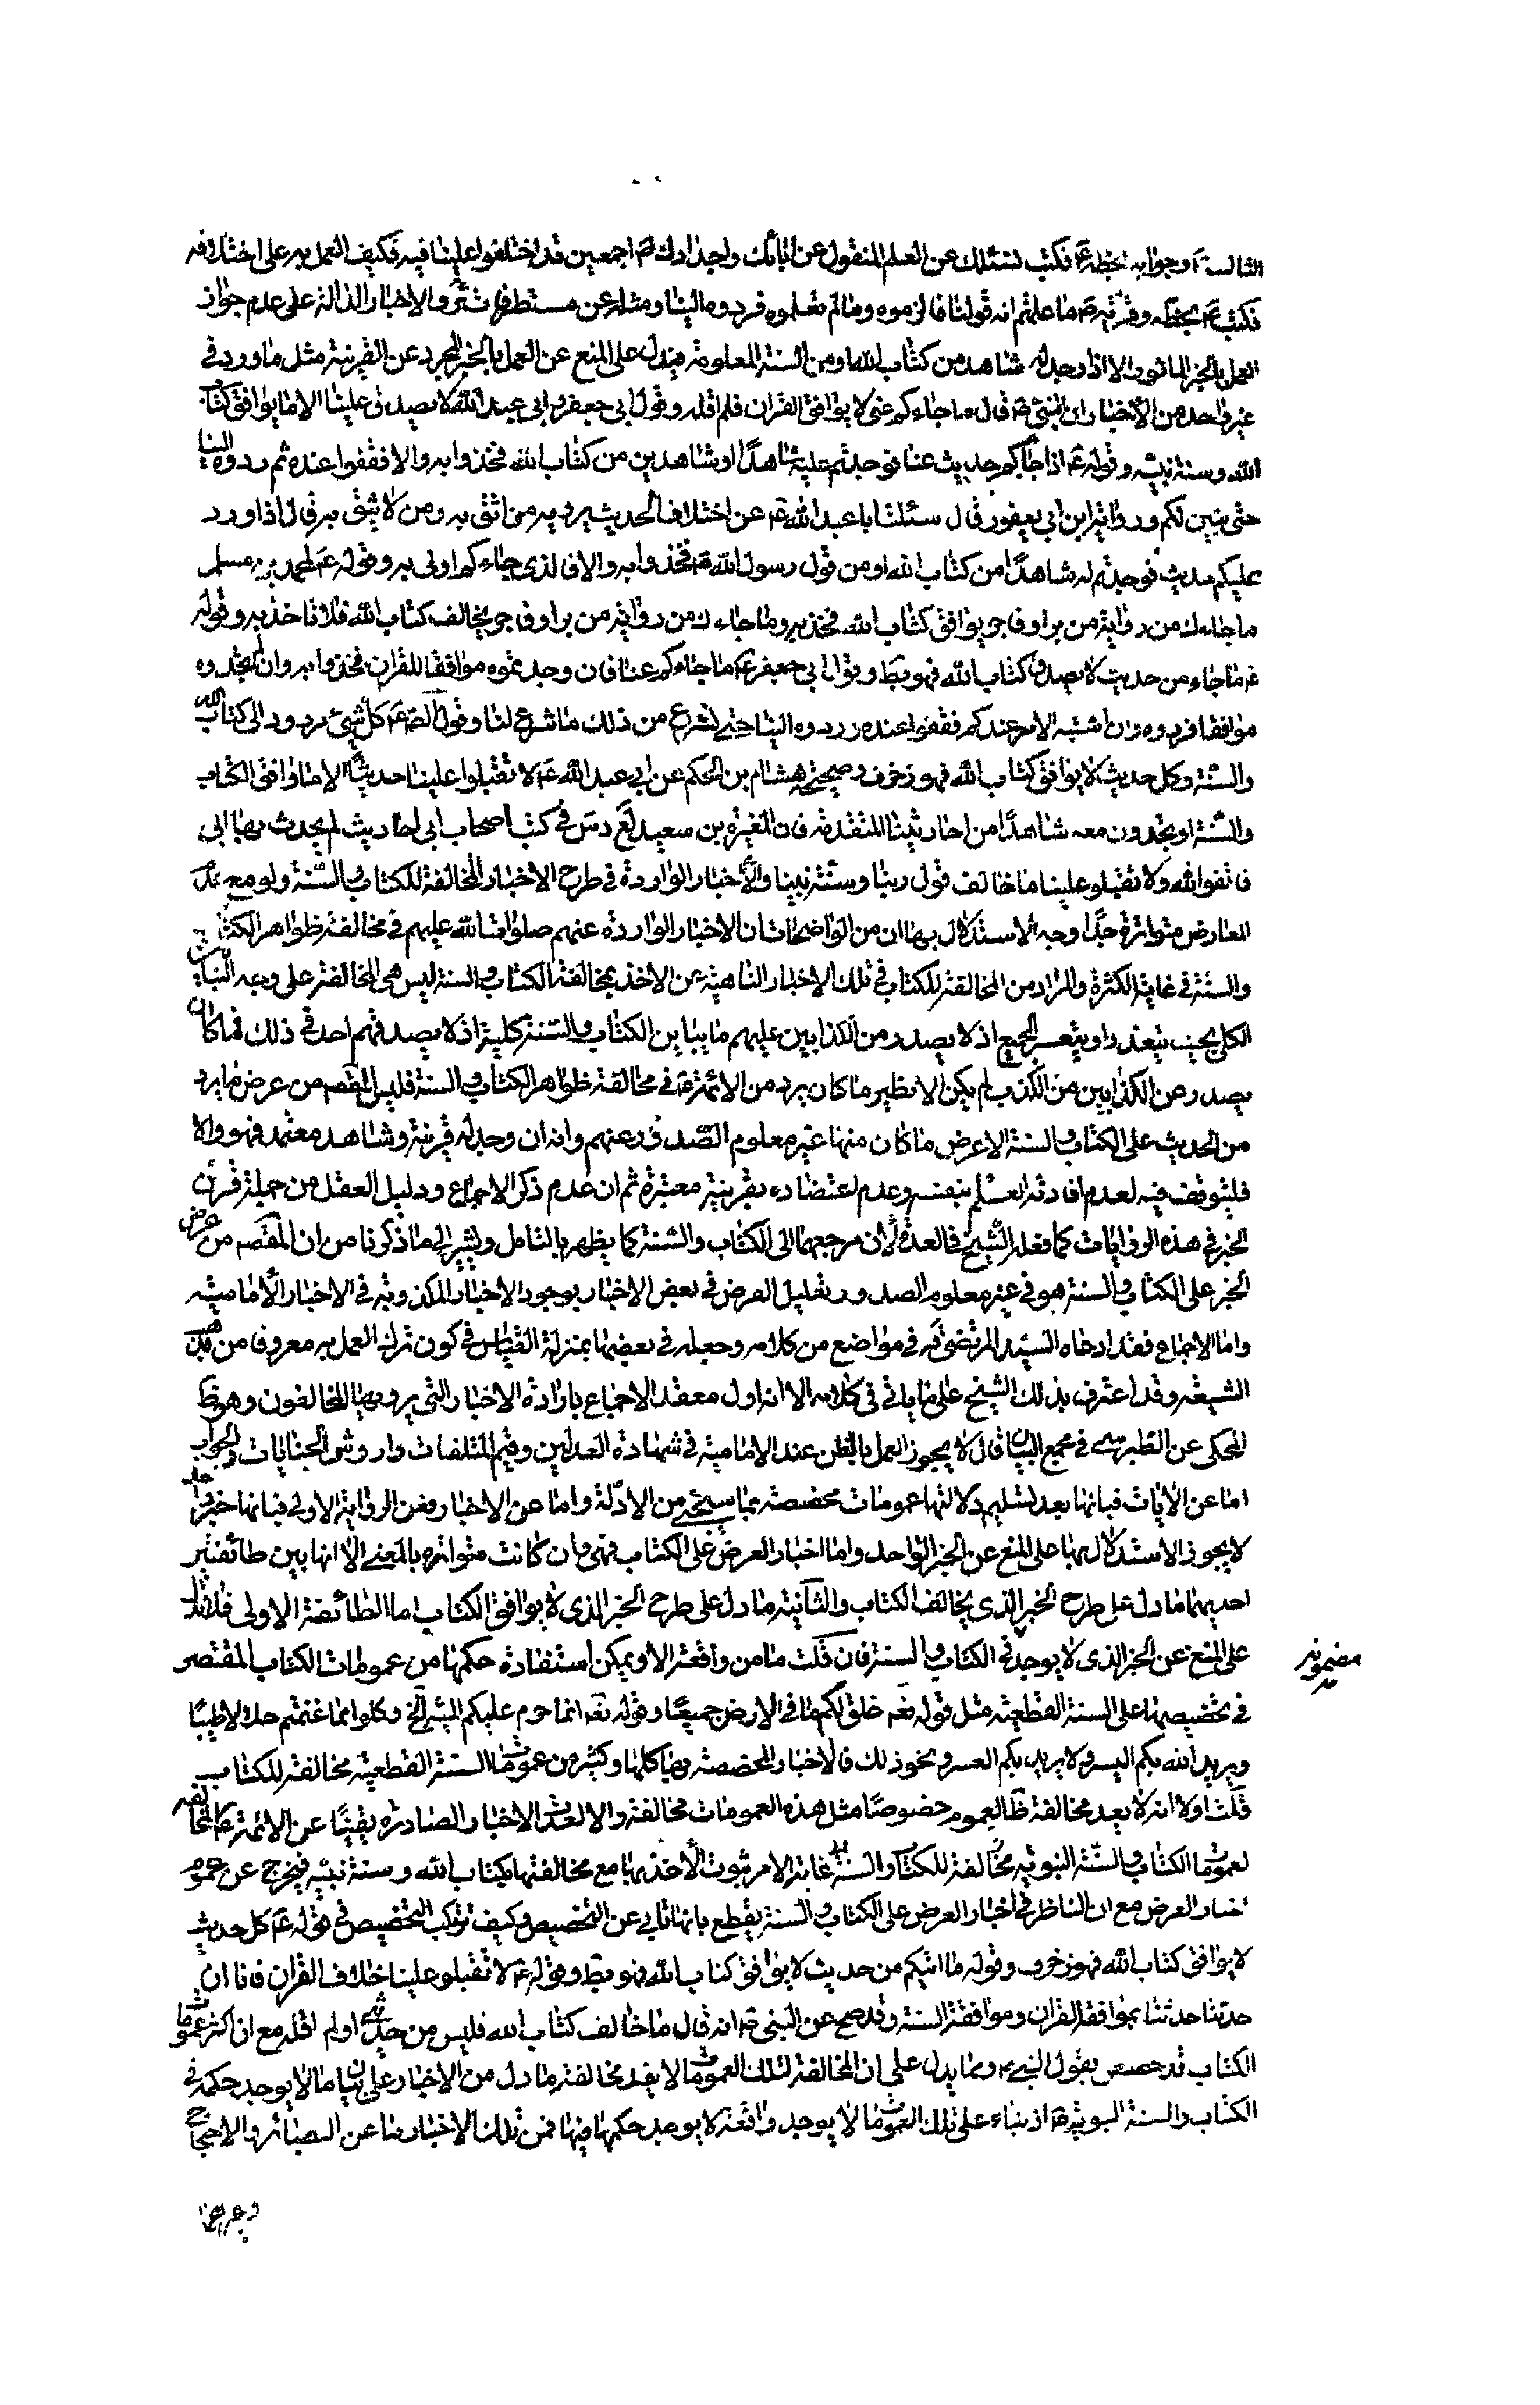 الثالث ع وجوابه بخطه ع فكتب نسئلك عن العلم المنقول عن ابائك واجدادك ع اجمعين قد اختلفوا علينا فيه فكيف العمل به على اختلافه
فكتب ع بخطه وقرئته ما علمتم انه قولنا فالزموه وما لم تعلموه فردوه الينا ومثله عن مستطرفات ئر والاخبار الدالة على عدم جواز
العمل بالخبر الماثور الا اذا وجد له شاهد من كتاب الله او من السنة المعلومة فيدل على المنع عن العمل بالخبر المجرد عن القرينة مثل ما ورد في
غير واحد من الأخبار ان النبي ص قال ما جاءكم عني لا يوافق القران فلم اقله وقول ابي جعفر وابي عبد الله لا يصدق علينا الا ما يوافق كتاب
الله وسنة نبيه وقوله ع اذا جاءكم حديث عنا فوجدتم عليه شاهدًا او شاهدين من كتاب الله فخذوا به والا فقفوا عنده ثم ردوه الينا
حتى يبين لكم ورواية ابن ابي يعفور قال سئلت ابا عبد الله ع عن اختلاف الحديث يرويه من اثق به ومن لا يثق به قال اذا ورد
عليكم حديث فوجدتم له شاهدًا من كتاب الله او من قول رسول الله ص فخذوا به والا فالذي جاءكم اولى به وقوله ع لمحمد بن مسلم
ما جاءك من رواية من بر او فاجر يوافق كتاب الله فخذ به وما جاءك من رواية من بر او فاجر يخالف كتاب الله فلا تاخذ به وقوله
ع ما جاء من حديث لا يصدقه كتاب الله فهو بط وقول ابي جعفر ع ما جاءكم عنا فان وجدتموه موافقا للقران فخذوا به وان لم تجدوه
موافقا فردوه وان اشتبه الامر عندكم فقفوا عنده وردوه الينا حتى نشرع من ذلك ما شرع لنا وقول الص ع كل شيئ مردود الى كتاب الله
والسنة وكل حديث لا يوافق كتاب الله فهو زخرف وصحيحة هشام بن الحكم عن ابي عبد الله ع لا تقبلوا علينا حديثًا الا ما وافق الكتاب
والسنة او تجدون معه شاهدًا من احاديثنا المتقدمة فان المغيرة بن سعيد لع دس في كتب اصحاب ابي احاديث لم يحدث بها ابي
فاتقوا الله ولا تقبلوا علينا ما خالف قول ربنا وسنة نبينا والأخبار الواردة في طرح الاخبار المخالفة للكتاب والسنة ولو مع عدم
المعارض متواترة جدًا وجه الاستدلال بها ان من الواضحات ان الاخبار الواردة عنهم صلوات الله عليهم في مخالفة ظواهر الكتاب
والسنة في غاية الكثرة والمراد من المخالفة للكتاب في تلك الاخبار الناهية عن الاخذ بمخالفة الكتاب والسنة ليس هي المخالفة على وجه التباين
الكلي بحيث يتعذر او يتعسر الجمع اذ لا يصدر من الكذابين عليهم ما يباين الكتاب والسنة كلية اذ لا يصدقهم احد في ذلك فما كان
يصدر عن الكذابين من الكذب لم يكن الا نظير ما كان يرد من الائمة ع في مخالفة ظواهر الكتاب والسنة فليس المقصم من عرض ما يرد
من الحديث على الكتاب والسنة الا عرض ما كان منها غير معلوم الصدور عنهم وانه ان وجد له قرينة وشاهد معتمد فهو والا
فليتوقف فيه لعدم افادته العلم بنفسه وعدم اعتضاده بقرينة معتبرة ثم ان عدم ذكر الاجماع ودليل العقل من جملة قرائن
الخبر في هذه الروايات كما فعله الشيخ في العدة لان مرجعهما الى الكتاب والسنة كما يظهر بالتامل ويشير الى ما ذكرنا من ان المقصم من عرض
الخبر على الكتاب والسنة هو في غير معلوم الصدور تعليل العرض في بعض الاخبار بوجود الاخبار المكذوبة في الاخبار الأمامية
واما الاجماع فقد ادعاه السيد المرتضى قه في مواضع من كلامه وجعله في بعضها بمنزلة القياس في كون ترك العمل به معروفا من مذهب
الشيعة وقد اعترف بذلك الشيخ على ما ياتي في كلامه الا انه اول معقد الاجماع بارادة الاخبار التي يرويها المخالفون وهو ظ
المحكي عن الطبرسي في مجمع البيان قال لا يجوز العمل بالظن عند الامامية في شهادة العدلين وقيم المتلفات واروش الجنايات والجواب
اما عن الايات فبانها بعد تسليم دلالتها عمومات مخصصة بما سيجئ من الادلة واما عن الاخبار فعن الرواية الاولى فبانها خبر واحد
لا يجوز الاستدلال بها على المنع عن الخبر الواحد واما اخبار العرض على الكتاب فهي وان كانت متواترة بالمعنى الا انها بين طائفتين
احديهما ما دل على طرح الخبر الذي يخالف الكتاب والثانية ما دل على طرح الخبر الذي لا يوافق الكتاب اما الطائفة الاولى فلا تدل
على المنع عن الخبر الذي لا يوجد في الكتاب والسنة فان قلت ما من واقعة الا ويمكن استفادة حكمها من عمومات الكتاب المقتصر
مضمونه
في تخصيصها على السنة القطعية مثل قوله تعه خلق لكم ما في الارض جميعًا وقوله تعه انما حرم عليكم الميتة الخ وكلوا مما غنمتم حلالا طيبًا
ويريد الله بكم اليسر ولا يريد بكم العسر ونحو ذلك فالاخبار المخصصة لها كلها وكثير من عمومات السنة القطعية مخالفة للكتاب
قلت اولا انه لا يعد مخالفة ظ العموم خصوصًا مثل هذه العمومات مخالفة والا لعدت الاخبار الصادرة يقينًا عن الائمة ع المخالفة
لعمومات الكتاب والسنة النبوية مخالفة للكتاب والسنة غاية الامر ثبوت الأخذ بها مع مخالفتها لكتاب الله وسنة نبيه فيخرج عن عموم
اخبار العرض مع ان الناظر في اخبار العرض على الكتاب والسنة يقطع بانها تابى عن التخصيص وكيف ترتكب التخصيص في قوله ع كل حديث
لا يوافق كتاب الله فهو زخرف وقوله ما اتيكم من حديث لا يوافق كتاب الله فهو بط وقوله ع لا تقبلوا علينا خلاف القران فانا ان
حدثنا حدثنا بموافقة القران وموافقة السنة وقد صح عن النبي ص انه قال ما خالف كتاب الله فليس من حديثي او لم اقله مع ان اكثر عمومات
الكتاب قد خصص بقول النبي ص ومما يدل على ان المخالفة لتلك العمومات لا يعد مخالفة ما دل من الاخبار على بيان ما لا يوجد حكمه في
الكتاب والسنة النبوية اذ بناء على تلك العمومات لا يوجد واقعة لا يوجد حكمها فيها فمن تلك الاخبار ما عن البصائر والاحتجاج